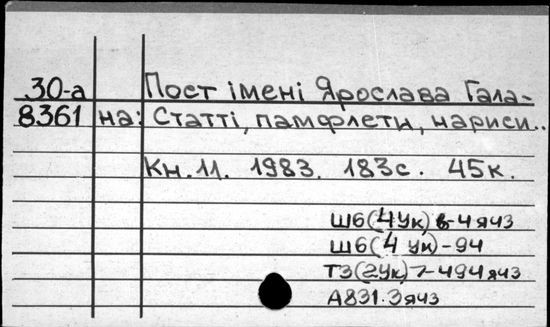 30-а Пост імені Ярослава Гала-
8361 на: Статті, памфлети, нариси..
Кн.11. 1983. 183с. 45к.
Ш6(4Ук) -4яч3
Ш6(4Ук)-94
Т3(2Ук)7-494яч3
А831.3яч3